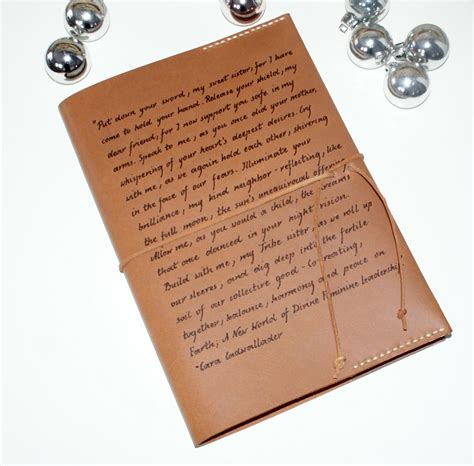 "Put down your sword, my sweet sister; for I have
come to hold your hand. Release your shield, my
dear friend; for I now support you safe in my
arms. Speak to me, as you once did your mother,
whispering of your heart's deepest desires. Cry
with me, as we again hold each other, shivering
in the face of our fears. Illuminate your
brilliance, my kind neighbor - reflecting, like
the full moon, the sun's unequivocal offering.
Allow me, as you would a child, the dreams
that once danced in your night vision.
Build with me, my Tribe sister as we roll up
our sleeves, and dig deep into the fertile
soil of our collective good - Co-creating,
together, balance, harmony and peace on
Earth; A New World of Divine Feminine Leadership
-Cara Cadwallader